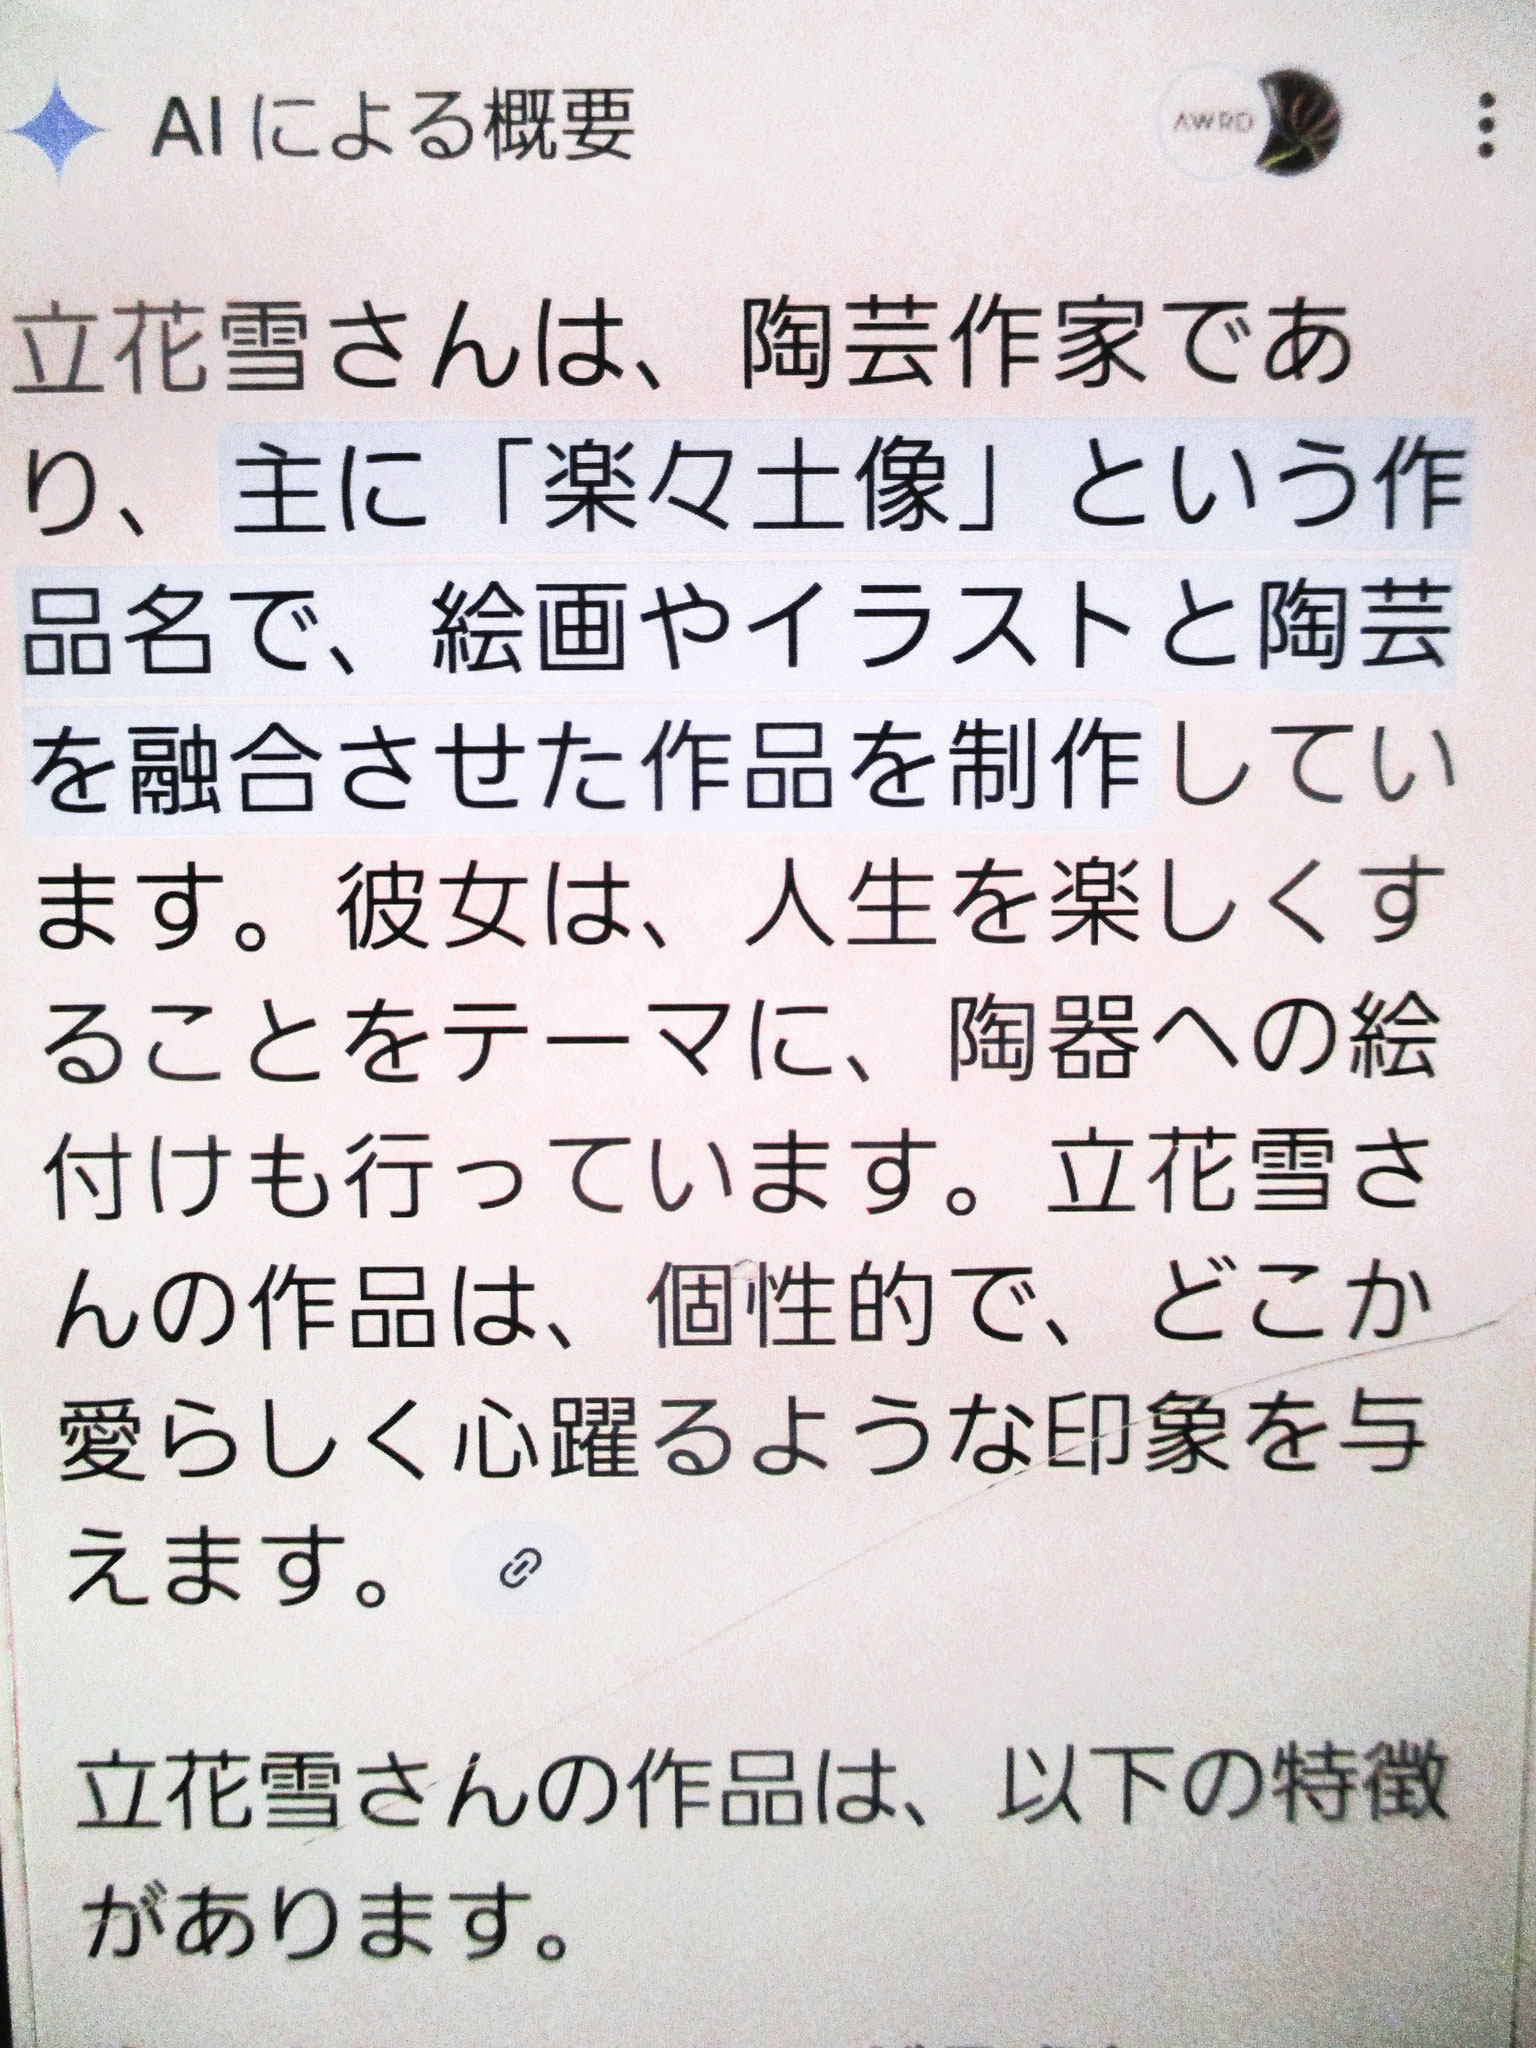 AI による概要
AWRD
立花雪さんは、陶芸作家であ
り、主に「楽々土像」という作
品名で、絵画やイラストと陶芸
を融合させた作品を制作してい
ます。彼女は、人生を楽しくす
ることをテーマに、陶器への絵
付けも行っています。立花雪さ
んの作品は、個性的で、どこか
愛らしく心躍るような印象を与
えます。
立花雪さんの作品は、以下の特徴
があります。